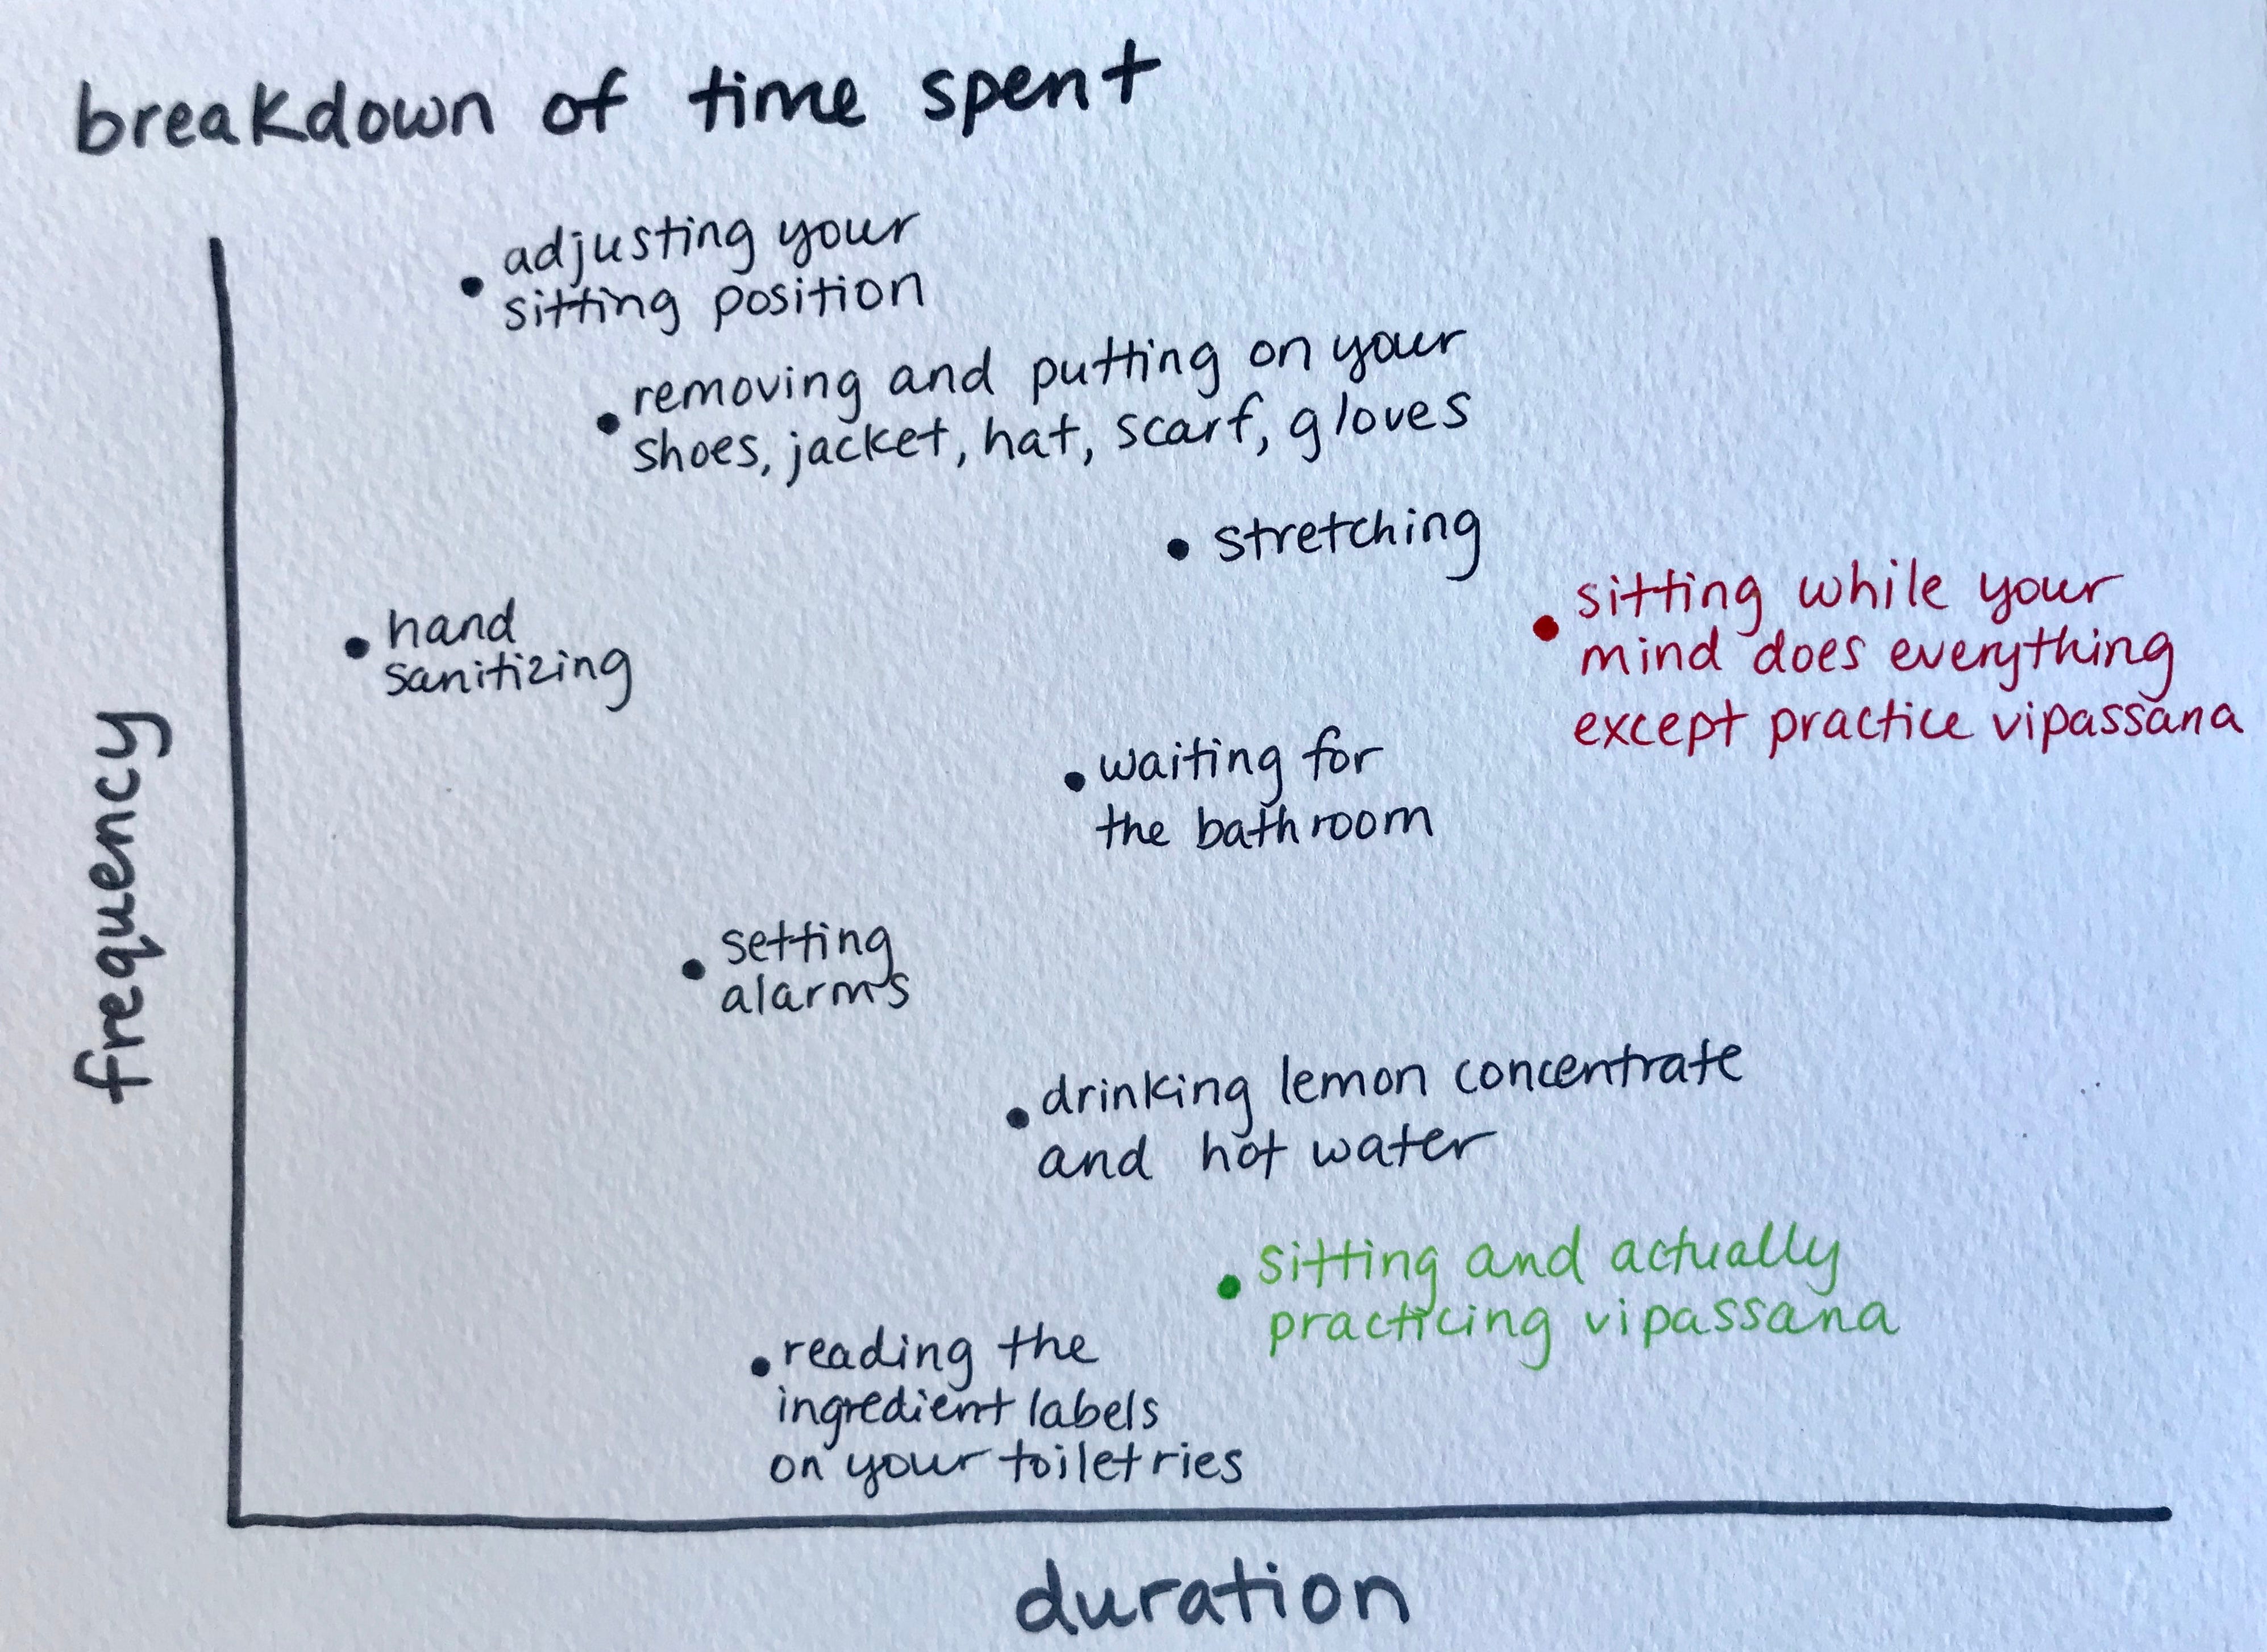 breakdown of time spent
adjusting your
sitting position
removing and putting on your
shoes, jacket, hat, scarf, gloves
stretching
sitting while your
mind does everything
except practice vipassana
hand
sanitizing
waiting for
the bathroom
frequency
setting
alarms
drinking lemon concentrate
and hot water
sitting and actually
practicing vipassana
reading the
ingredient labels
on your toiletries
duration